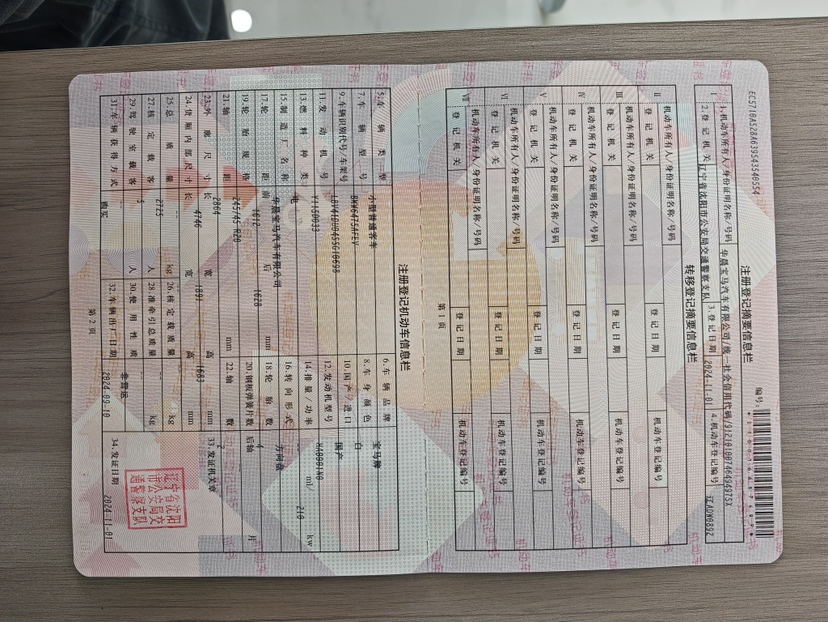 注册登记摘要信息栏
编号:
I
1.机动车所有人/身份证明名称/号码
华晨宝马汽车有限公司/统一社会信用代码/
2.登记机关
辽宁省沈阳市公安局交通警察支队
3.登记日期
2024-11-01
4.机动车登记编号
转移登记摘要信息栏
II
机动车所有人/身份证明名称/号码
登记机关
登记日期
机动车登记编号
III
机动车所有人/身份证明名称/号码
登记机关
登记日期
机动车登记编号
IV
机动车所有人/身份证明名称/号码
登记机关
登记日期
机动车登记编号
V
机动车所有人/身份证明名称/号码
登记机关
登记日期
机动车登记编号
VI
机动车所有人/身份证明名称/号码
登记机关
登记日期
机动车登记编号
VII
机动车所有人/身份证明名称/号码
登记机关
登记日期
机动车登记编号
第1页
注册登记机动车信息栏
5.车辆类型 小型普通客车 6.车辆品牌 宝马牌
7.车辆型号 BMW6475AFEV 8.车身颜色 白
9.车辆识别代号/车架号 10.国产/进口 国产
11.发动机号 12.发动机型号
13.燃料种类 电 14.排量/功率 ml/ 210 kw
15.制造厂名称 华晨宝马汽车有限公司 16.转向形式 方向盘
17.轮距 前 1612 后 1628 mm 18.轮胎数 4
19.轮胎规格 245/45 R20 20.钢板弹簧片数 后轴 片
21.轴距 2864 mm 22.轴数
23.外廓尺寸 长 4746 宽 1891 高 1683 mm 33.发证机关章
24.货厢内部尺寸 长 宽 高 mm
25.总质量 2725 kg 26.核定载质量 kg
27.核定载客 5 人 28.准牵引总质量 kg
29.驾驶室载客 人 30.使用性质 非营运
31.车辆获得方式 购买 32.车辆出厂日期 2024-09-10 34.发证日期 2024-11-01
辽宁省沈阳
市公安局交
通警察支队
第2页